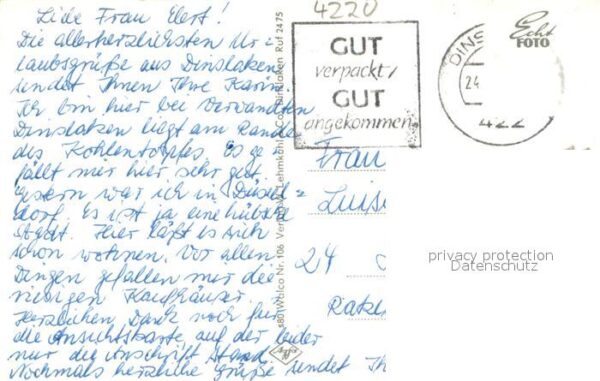 Liebe Frau Elert!
Die allerherzlichsten Ur=
laubsgrüße aus Dinslaken
sendet Ihnen Ihre Karin.
Ich bin hier bei Verwandten
Dinslaken liegt am Rande
des Kohlenpottes. Es ge=
fällt mir hier sehr gut.
Gestern war ich in Düssel=
dorf. Es ist ja eine hübsche
Stadt. Hier läßt es sich
schon wohnen. Vor allen
Dingen gefallen mir die
riesigen Kaufhäuser.
Herzlichen Dank noch für
die Ansichtskarte, auf der leider
nur die Anschrift stand.
Nochmals herzliche Grüße sendet Ih
Wolco Nr. 106 Lehmkühler Dinslaken Ruf 2475
Agfa
4220
GUT
verpackt,
GUT
angekommen
DINS
24
422
Echt
FOTO
Frau
Luis
24
Ratze
privacy protection
Datenschutz